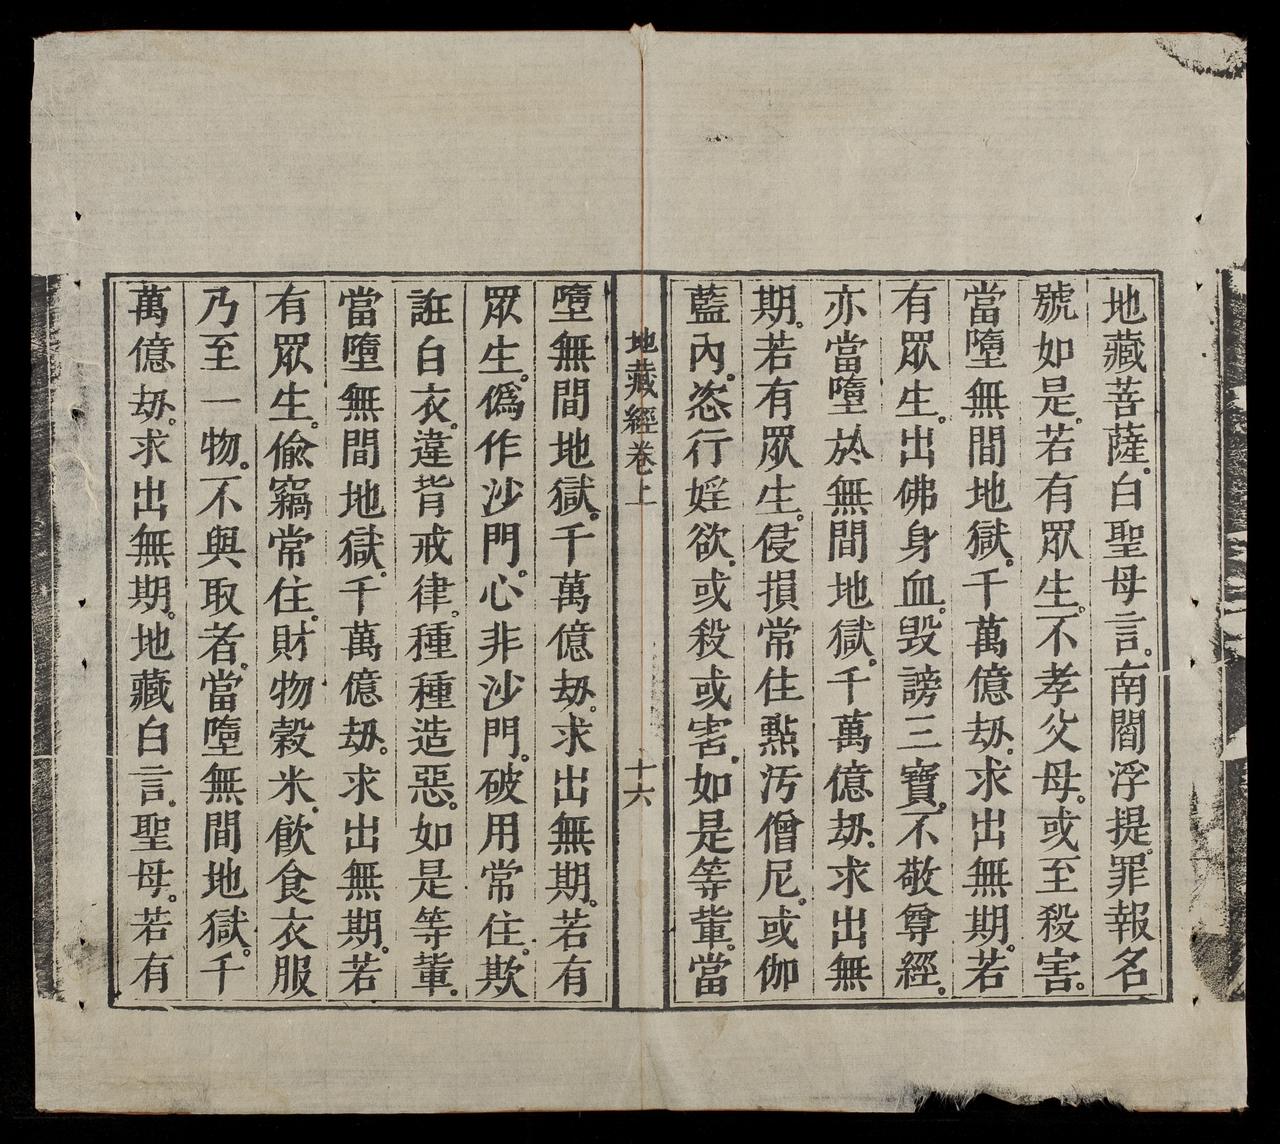 地藏菩薩。白聖母言。南閻浮提。罪報名
號如是。若有眾生。不孝父母。或至殺害。
當墮無間地獄。千萬億劫。求出無期。若
有眾生。出佛身血。毀謗三寶。不敬尊經。
亦當墮於無間地獄。千萬億劫。求出無
期。若有眾生。侵損常住。點汚僧尼。或伽
藍內。恣行婬欲。或殺或害。如是等輩。當
地藏經卷上
十六
墮無間地獄。千萬億劫。求出無期。若有
眾生。僞作沙門。心非沙門。破用常住。欺
誑白衣。違背戒律。種種造惡。如是等輩。
當墮無間地獄。千萬億劫。求出無期。若
有眾生。偸竊常住。財物穀米。飮食衣服
乃至一物。不與取者。當墮無間地獄。千
萬億劫。求出無期。地藏白言。聖母。若有